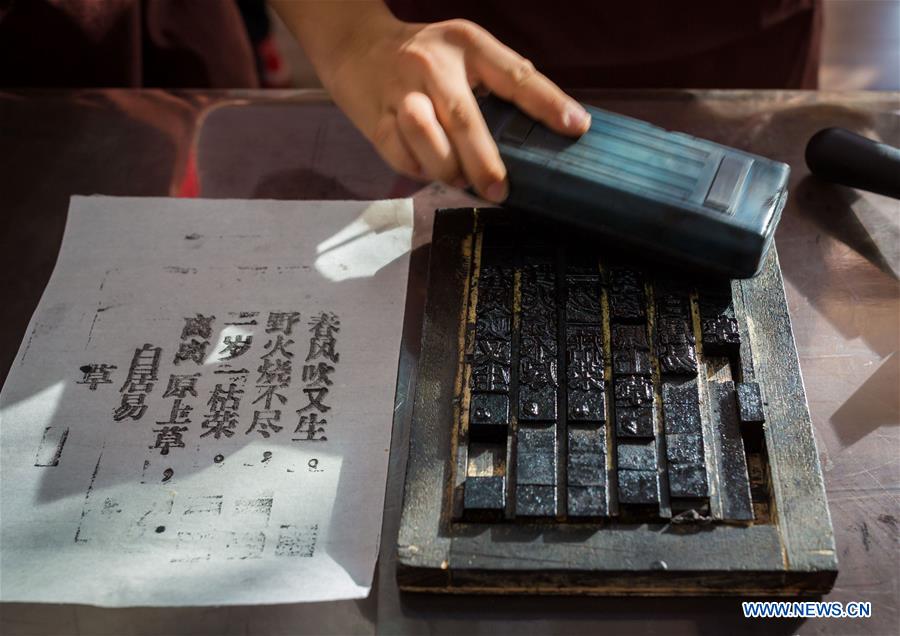 草
自居易
离离原上草，
一岁一枯荣。
野火烧不尽，
春风吹又生。
WWW.NEWS.CN